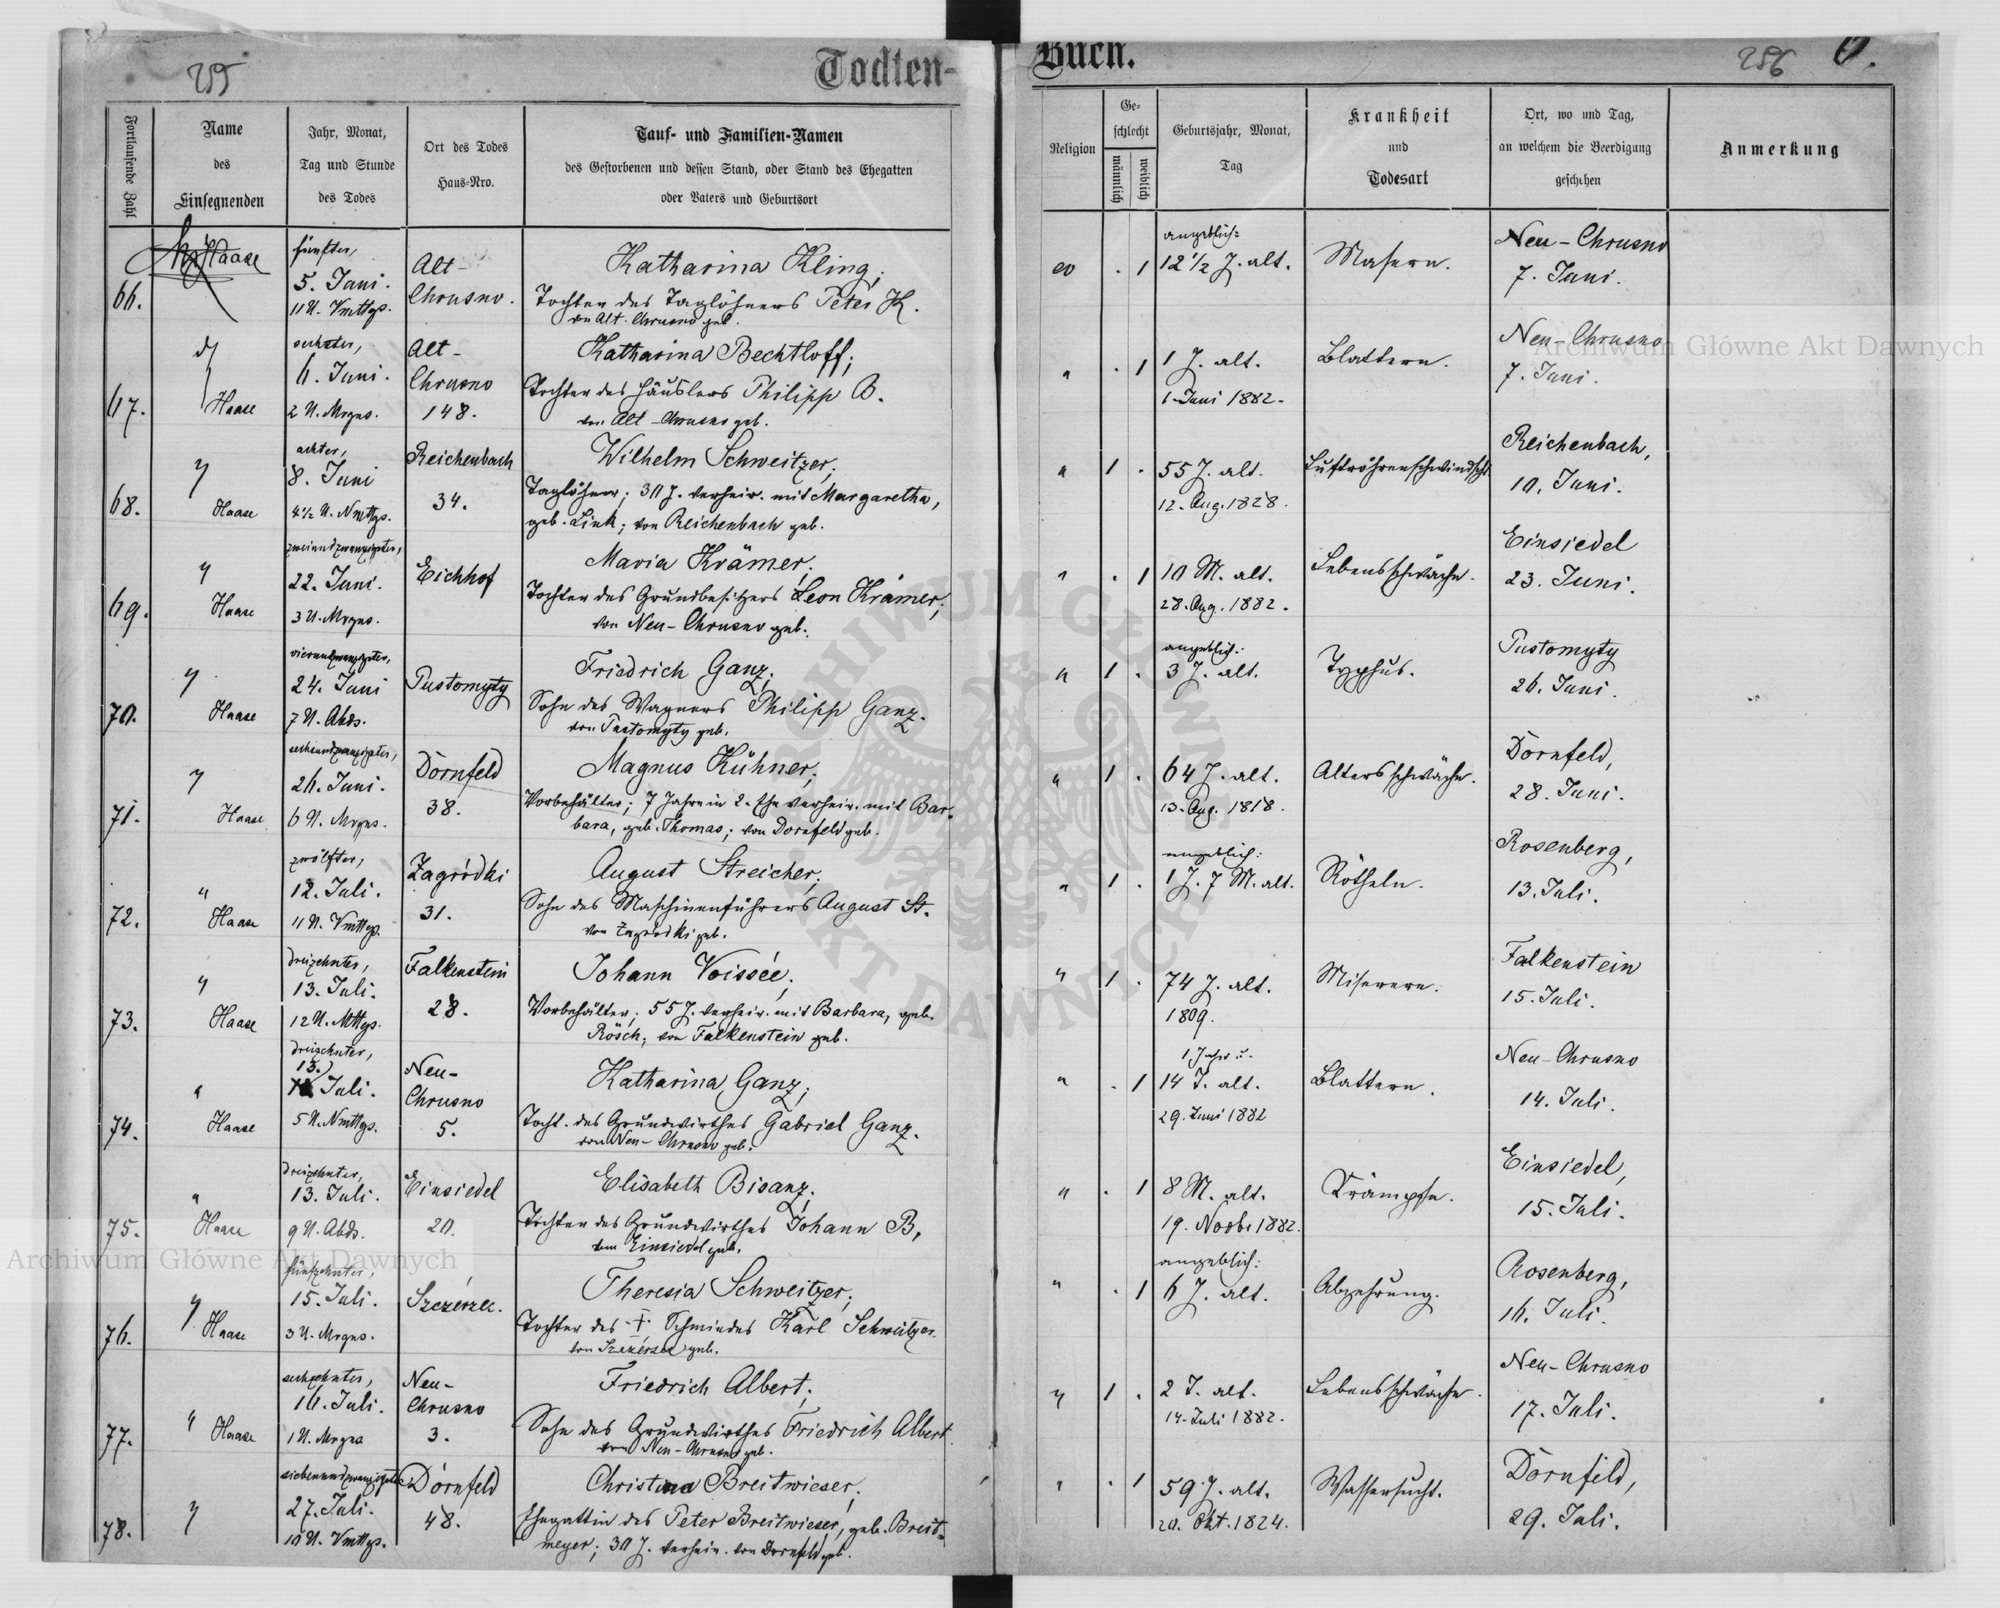 255
Todten-
Fortlaufende Zahl
Name
des
Einsegnenden
Jahr, Monat,
Tag und Stunde
des Todes
Ort des Todes
Haus-Nro.
Tauf- und Familien-Namen
des Gestorbenen und dessen Stand, oder Stand des Ehegatten
oder Vaters und Geburtsort
Buch.
256
Religion
Ge-
schlecht
männlich
weiblich
Geburtsjahr, Monat,
Tag
Krankheit
und
Todesart
Ort, wo und Tag,
an welchem die Beerdigung
geschehen
Anmerkung
66.
Haase
fünfter,
5. Juni.
11 U. Vmttgs.
Alt-
Chrusno.
Katharina Kling,
Tochter des Taglöhners Peter K.
von Alt-Chrusno geb.
ev . 1
angeblich:
12 1/2 J. alt.
Masern.
Neu-Chrusno
7. Juni.
67.
Haase
sechster,
6. Juni.
2 U. Mrgns.
Alt-
Chrusno
148.
Katharina Bechtloff;
Tochter des Häuslers Philipp B.
von Alt-Chrusno geb.
" . 1
1 J. alt.
1. Juni 1882.
Blattern.
Neu-Chrusno
7. Juni.
68.
Haase
achter,
8. Juni
4 1/2 U. Nmttgs.
Reichenbach
34.
Wilhelm Schweitzer;
Taglöhner; 30 J. verheir. mit Margaretha,
geb. Link; von Reichenbach geb.
" 1 .
55 J. alt.
12. Aug. 1828.
Luftröhrenschwindscht
Reichenbach,
10. Juni.
69.
Haase
zweiundzwanzigster,
22. Juni.
3 U. Mrgns.
Eichhof
Maria Krämer;
Tochter des Grundbesitzers Leon Krämer;
von Neu-Chrusno geb.
" . 1
10 M. alt.
28. Aug. 1882.
Lebensschwäche.
Einsiedel
23. Juni.
70.
Haase
vierundzwanzigster,
24. Juni
7 U. Abds.
Pustomyty
Friedrich Ganz;
Sohn des Wagners Philipp Ganz.
von Pustomyty geb.
" 1 .
angeblich:
3 J. alt.
Typhus.
Pustomyty
26. Juni.
71.
Haase
sechsundzwanzigster,
26. Juni.
6 U. Mrgns.
Dornfeld
38.
Magnus Kühner;
Vorbehälter; 7 Jahre in 2. Ehe verheir. mit Bar-
bara, geb. Thomas; von Dornfeld geb.
" 1 .
64 J. alt.
13. Aug. 1818.
Altersschwäche.
Dornfeld,
28. Juni.
72.
Haase
zwölfter,
12. Juli.
11 U. Vmttgs.
Zagródki
31.
August Streicher;
Sohn des Maschinenführers August St.
von Zagródki geb.
" 1 .
angeblich:
1 J. 7 M. alt.
Rötheln.
Rosenberg,
13. Juli.
73.
Haase
dreizehnter,
13. Juli.
12 U. Mttgs.
Falkenstein
28.
Johann Voissée;
Vorbehälter; 55 J. verheir. mit Barbara, geb.
Rösch, von Falkenstein geb.
" 1 .
74 J. alt.
1809.
Miserere.
Falkenstein
15. Juli.
74.
Haase
dreizehnter,
13.
Juli.
5 U. Nmttgs.
Neu-
Chrusno
5.
Katharina Ganz;
Tocht. des Grundwirthes Gabriel Ganz.
von Neu-Chrusno geb.
" . 1
1 Jahr u.
14 T. alt.
29. Juni 1882
Blattern.
Neu-Chrusno
14. Juli.
75.
Haase
dreizehnter,
13. Juli.
9 U. Abds.
Einsiedel
20.
Elisabeth Bisanz;
Tochter des Grundwirthes Johann B.
von Einsiedel geb.
" . 1
8 M. alt.
19. Novbr 1882.
Krämpfe.
Einsiedel,
15. Juli.
76.
Haase
fünfzehnter,
15. Juli.
3 U. Mrgns.
Szczerzec.
Theresia Schweitzer;
Tochter des † Schmiedes Karl Schweitzer
von Szczerzec geb.
" . 1
angeblich:
6 J. alt.
Abzehrung.
Rosenberg,
16. Juli.
77.
Haase
sechzehnter,
16. Juli.
1 U. Mrgns
Neu-
Chrusno
3.
Friedrich Albert;
Sohn des Grundwirthes Friedrich Albert
von Neu-Chrusno geb.
" 1 .
2 T. alt.
14. Juli 1882.
Lebensschwäche.
Neu-Chrusno
17. Juli.
78.
siebenundzwanzigster
27. Juli.
10 U. Vmttgs.
Dornfeld
48.
Christina Breitwieser;
Ehegattin des Peter Breitwieser, geb. Breit-
meyer; 30 J. verheir. von Dornfeld geb.
" . 1
59 J. alt.
20. Okt. 1824.
Wassersucht.
Dornfeld,
29. Juli.
Archiwum Główne Akt Dawnych
Archiwum Główne Akt Dawnych
ARCHIWUM GŁÓWNE AKT DAWNYCH